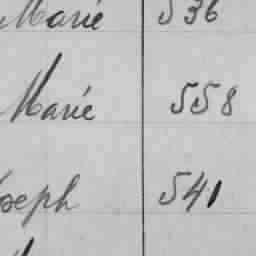 Marie 536
Marie 558
Joseph 541